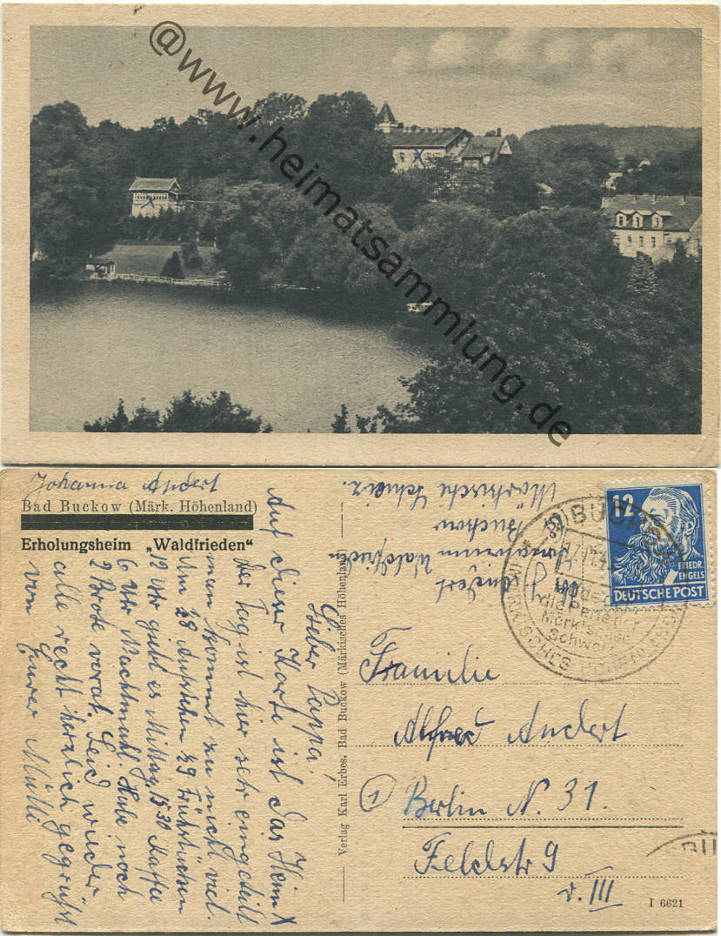 @www.heimatsammlung.de
Johanna Andert
Bad Buckow (Märk. Höhenland)
Erholungsheim „Waldfrieden“
Lieber Pappa!
Auf dieser Karte ist das Heim X
Der Tag ist hier sehr eingeteilt
man kommt zu nicht viel.
Um 8 Aufstehen 9 Frühstücken
12 Uhr gibt es Mittag, 15.30 Kaffee
6 Uhr Nachtmahl. Habe noch
2 Brote vorrat. Seid wieder
alle recht herzlich gegrüßt
von Eurer Mutti
Verlag Karl Erbes, Bad Buckow (Märkisches Höhenland)
Waldfrieden
Buckow
Märkische Schweiz.
BUCKOW
MÄRKISCHES HÖHENLAND
die Perle
Märkischen
Schweiz
12
FRIEDR.
ENGELS
DEUTSCHE POST
Familie
Alfred Andert
1 Berlin N. 31.
Feldstr 9
v. III
I 6621
BU